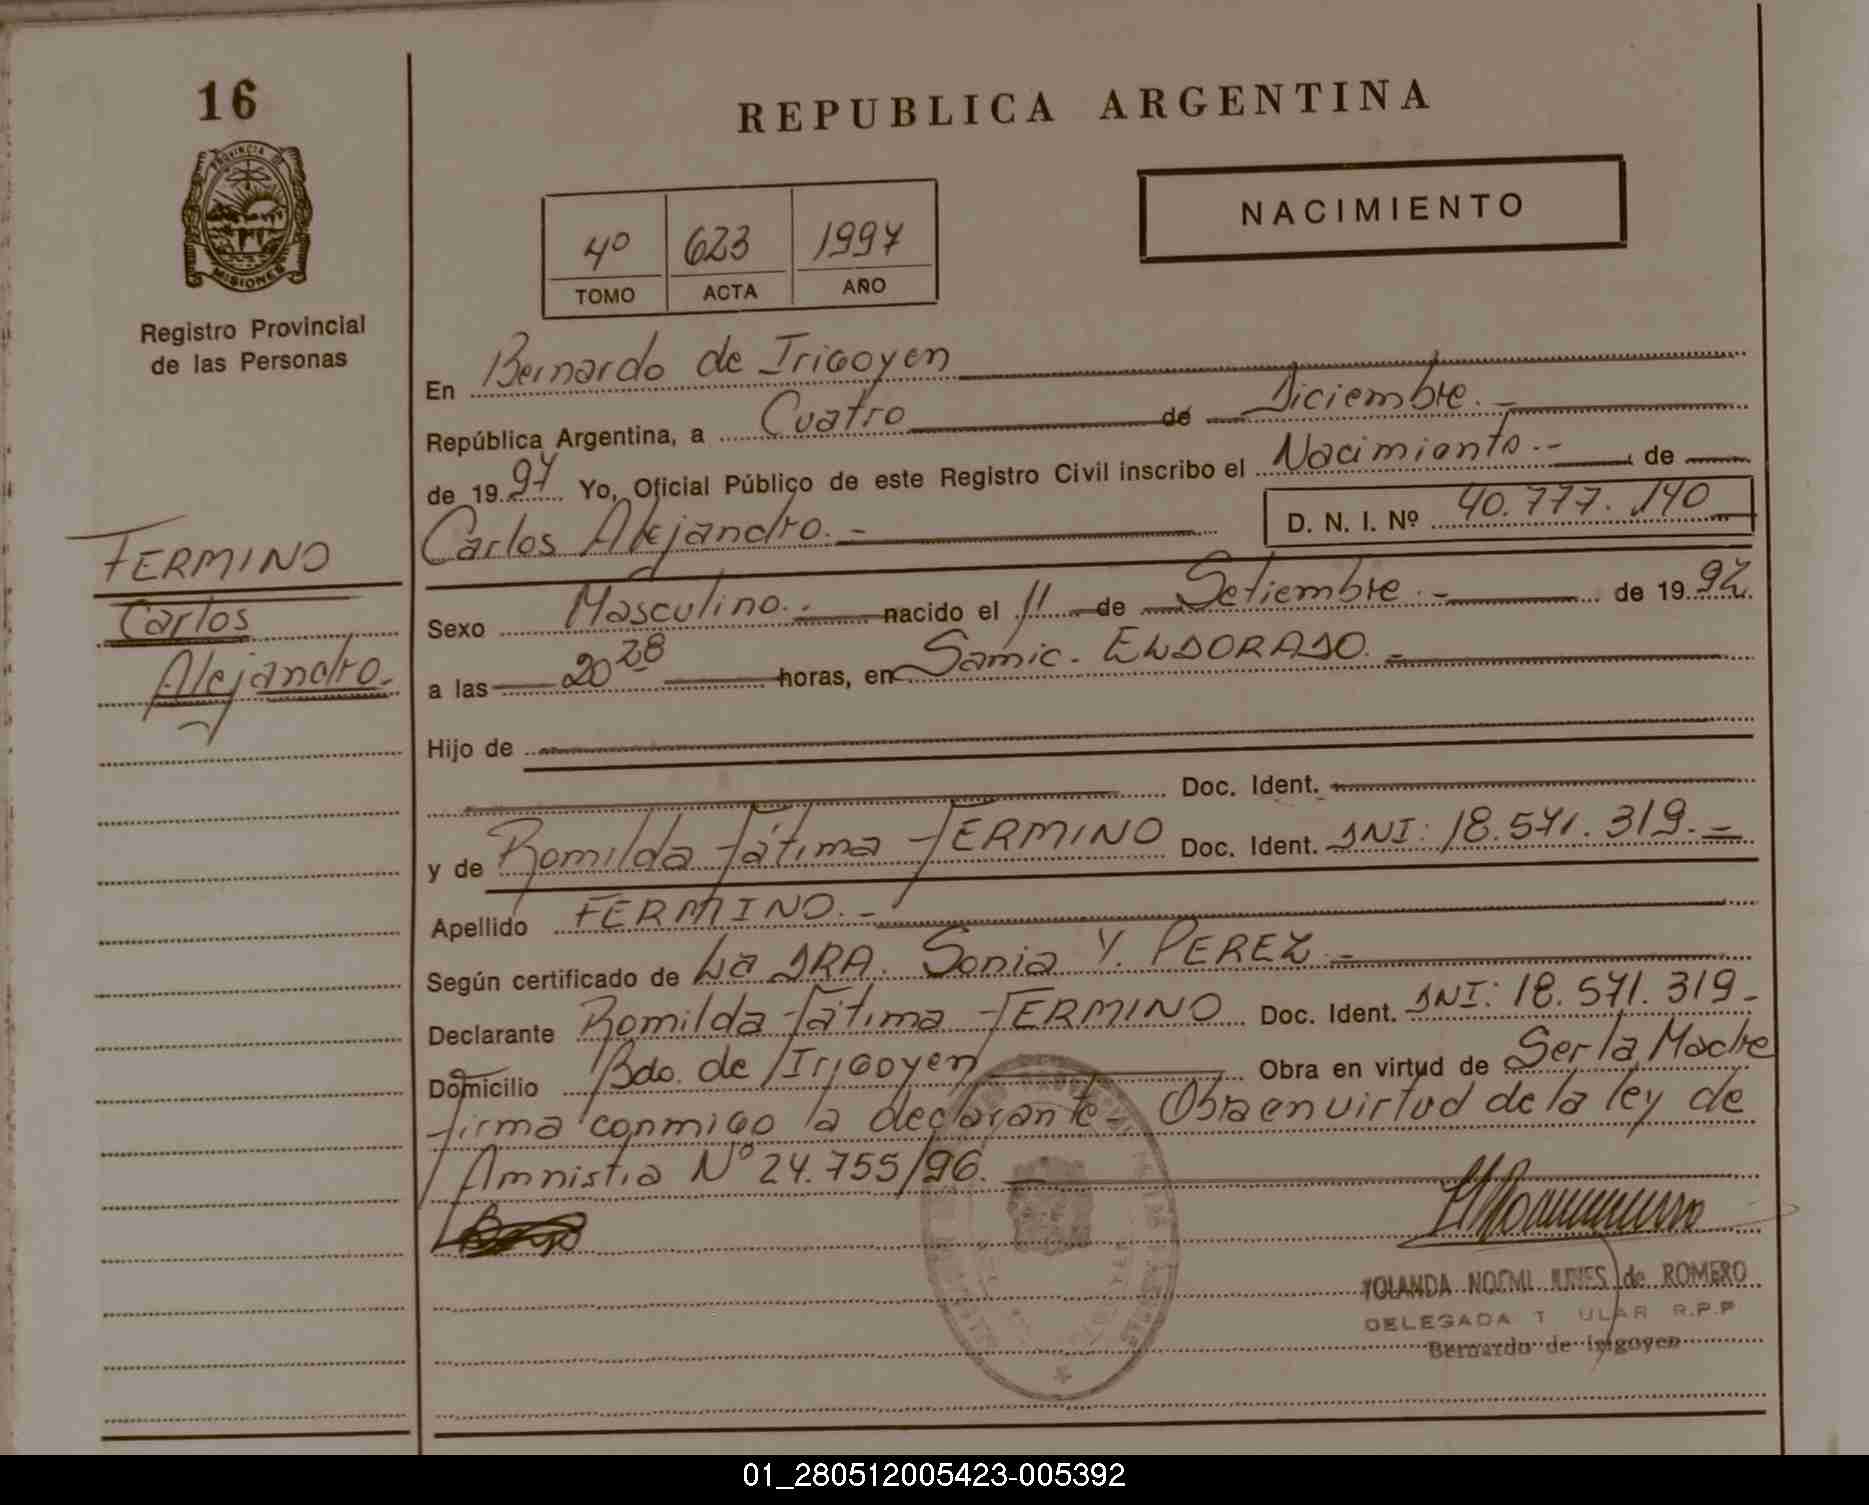 16
PROVINCIA DE
MISIONES
Registro Provincial
de las Personas
FERMINO
Carlos
Alejandro.-
REPUBLICA ARGENTINA
NACIMIENTO
4º 623 1997
TOMO ACTA AÑO
En Bernardo de Irigoyen
República Argentina, a Cuatro de Diciembre.-
de 1997 Yo, Oficial Público de este Registro Civil inscribo el Nacimiento.- de
Carlos Alejandro.- D. N. I. Nº 40.777.140
Sexo Masculino.- nacido el 11 de Setiembre.- de 1997.
a las 20 28 horas, en Samic. ELDORADO.-
Hijo de
Doc. Ident.
y de Romilda Fátima FERMINO Doc. Ident. DNI: 18.571.319.-
Apellido FERMINO.-
Según certificado de La DRA. Sonia Y. PEREZ.-
Declarante Romilda Fátima FERMINO Doc. Ident. DNI: 18.571.319.-
Domicilio Bdo. de Irigoyen Obra en virtud de Ser la Madre
firma conmigo la declarante.- Obra en virtud de la ley de
Amnistia Nº 24.755/96.
YOLANDA NOEMI de ROMERO
DELEGADA T ULAR R.P.P
Bernardo de Irigoyen
01_280512005423-005392